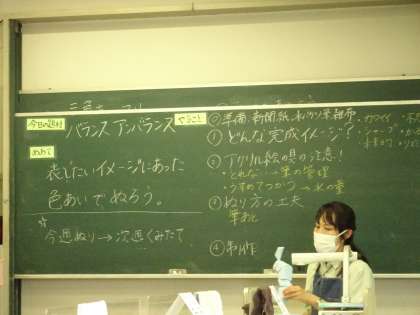 今日の題材
バランス アンバランス
めあて
表したいイメージにあった
色あいでぬろう。
☆
今週ぬり→次週くみたて
やること
◎準備 新聞紙
①どんな完成イメージ?
・カワイイ
・シャープ
②アクリル絵の具の注意!
・とれない→筆の管理
・うすめてつかう→水の量
③ぬり方の工夫
筆あと
④制作